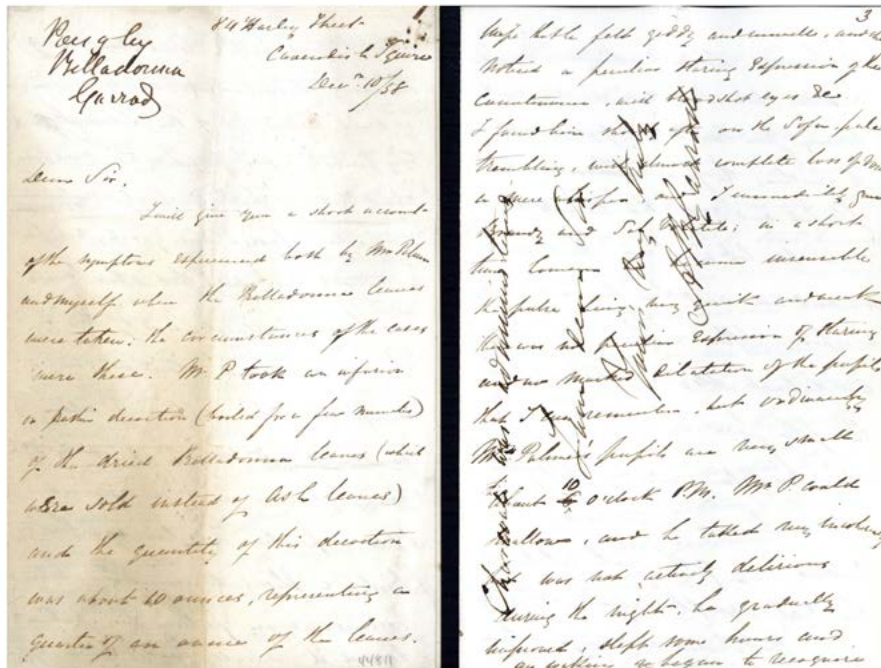 84 Harley Street
Cavendish Square
Decr. 10/58
Belladonna
Garrod
Dear Sir.
I will give you a short account
of the symptoms experienced both by Mr Palmer
and myself when the Belladonna leaves
were taken: the circumstances of the cases
were these. Mr P. took an infusion
or decoction (boiled for a few minutes)
of the dried Belladonna leaves (which
were sold instead of Ash leaves)
and the quantity of this decoction
was about 10 ounces, representing a
quarter of an ounce of the leaves.
44811
3
felt giddy and unwell, and
noticed a peculiar staring expression of the
Countenance, with bloodshot eyes &c
I found him after on the Sofa, pale
trembling, with almost complete loss of
I immediately gave
Brandy and in a short
time insensible
the pulse being very quick and weak
there was no peculiar expression of staring
and no marked dilatation of the pupils
that I can remember, but ordinarily
Mr Palmer's pupils are very small
About 10 o'clock P.M. Mr P. could
swallow, and he talked very
was not actively delirious
during the night, he gradually
improved, slept some hours and
began to recognise
I am dear Sir
yours very truly